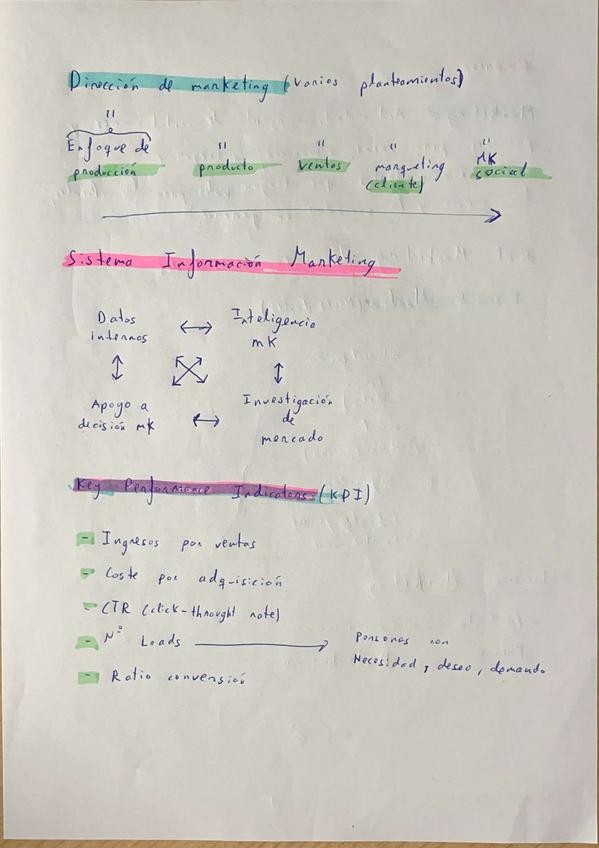 Dirección de marketing (varios planteamientos)
Enfoque de producción " producto " ventas " marqueting (cliente) " MK social
Sistema Información Marketing
Datos internos ↔ Inteligencia MK
Apoyo a decisión MK ↔ Investigación de mercado
Key Performance Indicators (KPI)
- Ingresos por ventas
- Coste por adquisición
- CTR (click-throught rate)
- Nº Leads → Personas con
Necesidad, deseo, demanda
- Ratio conversión